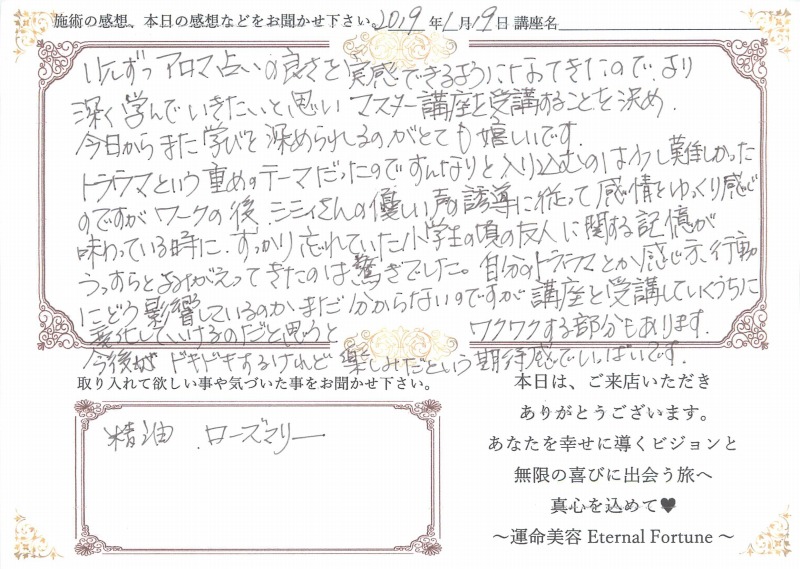 施術の感想、本日の感想などをお聞かせ下さい。2019年1月19日 講座名
りんずつ アロマ占いの良さを実感できるようになってきたので、より
深く学んでいきたいと思い マスター講座を受講することを決め、
今日からまた学びを深められるのがとても嬉しいです。
トラウマという重めのテーマだったのですんなりと入り込むのは少し難しかった
のですが ワークの後、シシィさんの優しい声の誘導に従って感情をゆっくり感じ
味わっている時に、すっかり忘れていた小学生の頃の友人に関する記憶が
うっすらとよみがえってきたのは驚きでした。自分のトラウマとか感じ方、行動
にどう影響しているのか まだ分からないのですが 講座を受講していくうちに
変化していけるのだと思うと ワクワクする部分もあります。
今後が ドキドキするけれど 楽しみだという期待感でいっぱいです。
取り入れて欲しい事や気づいた事をお聞かせ下さい。
精油 、ローズマリー
本日は、ご来店いただき
ありがとうございます。
あなたを幸せに導くビジョンと
無限の喜びに出会う旅へ
真心を込めて♥
～運命美容 Eternal Fortune ～